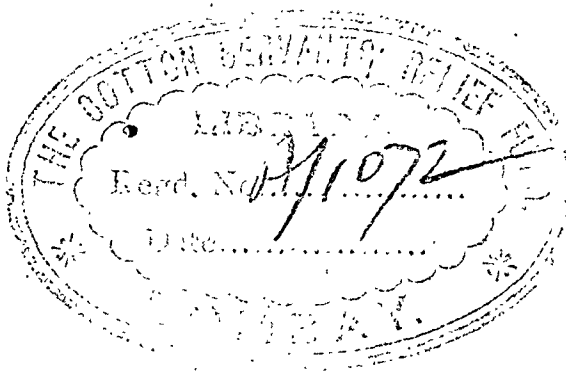 THE COTTON SERVANTS' RELIEF
LIBRARY
Regd. No. 1072
Date
BOMBAY.